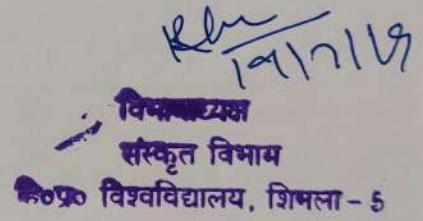 19/7/19
विभागाध्यक्ष
संस्कृत विभाग
हि०प्र० विश्वविद्यालय, शिमला - 5